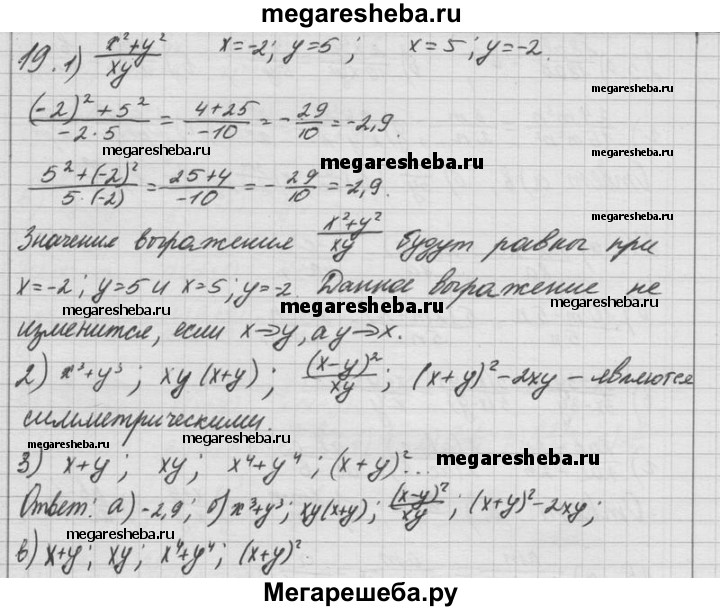 megaresheba.ru
19. 1) (x²+y²)/(xy) x=-2; y=5; x=5; y=-2.
megaresheba.ru
((-2)²+5²)/(-2·5) = (4+25)/(-10) = -29/10 = -2,9.
megaresheba.ru
megaresheba.ru
megaresheba.ru
(5²+(-2)²)/(5·(-2)) = (25+4)/(-10) = -29/10 = -2,9.
megaresheba.ru
Значение выражения (x²+y²)/(xy) будут равны при
x=-2; y=5 и x=5; y=-2 Данное выражение не
megaresheba.ru
megaresheba.ru
изменится, если x→y, а y→x.
2) x³+y³; xy(x+y); (x-y)²/(xy); (x+y)²-2xy – являются
симметрическими.
megaresheba.ru
megaresheba.ru
megaresheba.ru
3) x+y; xy; x⁴+y⁴; (x+y)²...
megaresheba.ru
Ответ: а) -2,9; б) x³+y³; xy(x+y); (x-y)²/(xy); (x+y)²-2xy;
megaresheba.ru
megaresheba.ru
в) x+y; xy; x⁴+y⁴; (x+y)²
Мегарешеба.ру